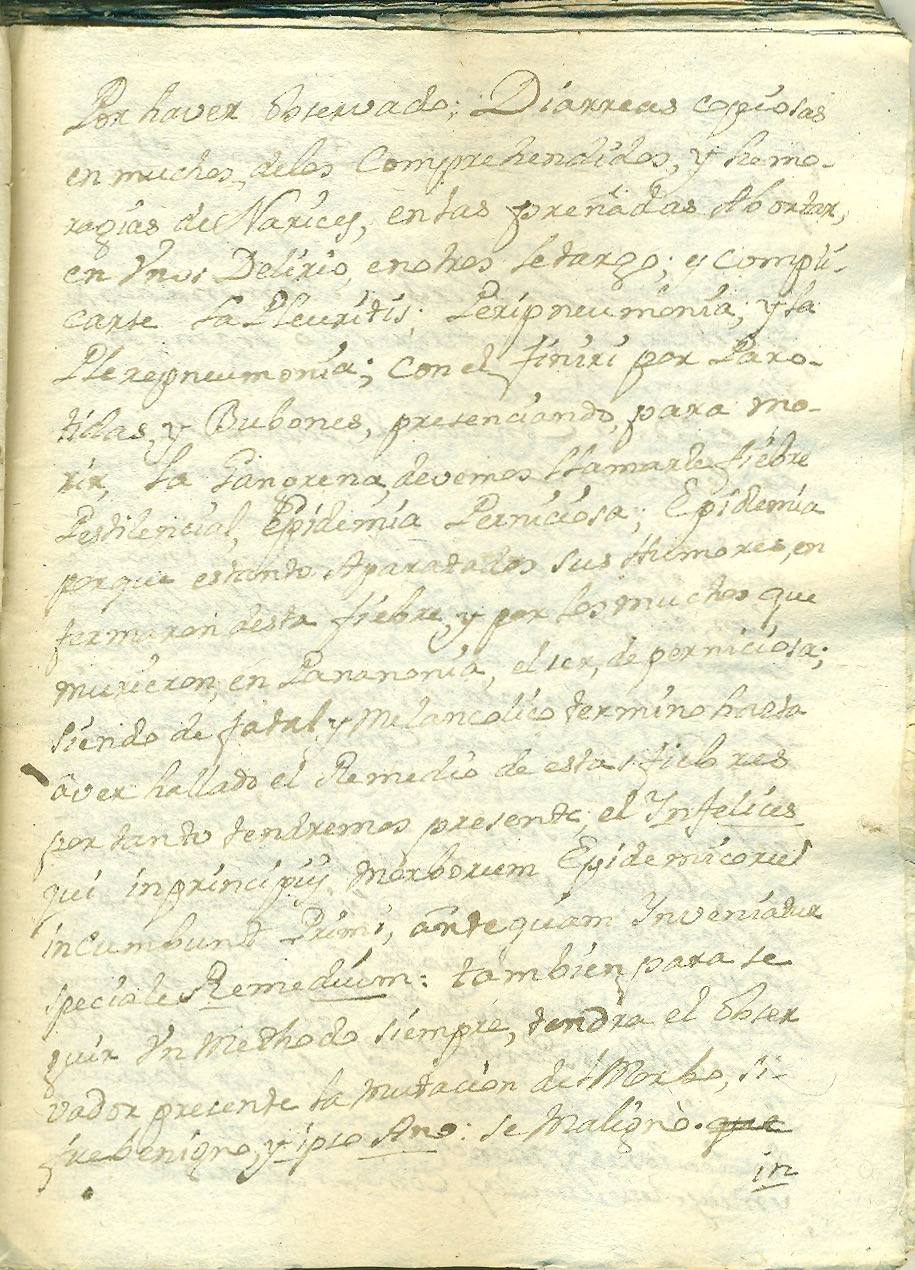 Por haver observado; Diarreas copiosas
en muchos, delos Comprehendidos, y hemo-
ragias de Narices, enlas preñadas Abortar,
en Vnos Delirio, enotros letargo; y compli-
carse la Pleuritis; Peripneumonia; y la
Plerepneumonia; con el finiri por Paro-
tidas, y Bubones, presenciando, para mo-
rir, la Gangrena, devemos llamarle fiebre
Pestilencial, Epidemia Perniciosa; Epidemia
porque estando Aparatados sus Humores, en
fermaron desta fiebre, y por los muchos que
murieron, en Pananonia, el ser, de perniciosa;
siendo de fatal y Melancolico termino hasta
aver hallado el Remedio de estas fiebres
por tanto tendremos presente, el Infelices
qui inprincipijs Morborum Epidemicorum
incumbunt Primi, antequam Inveniatur
speciale Remedium: tambien para se
guir Vn Methodo siempre, tendra el obser
vador presente la Mutacion del Morbo, si
fue benigno, y ipso Ano: se Maligno. que
in